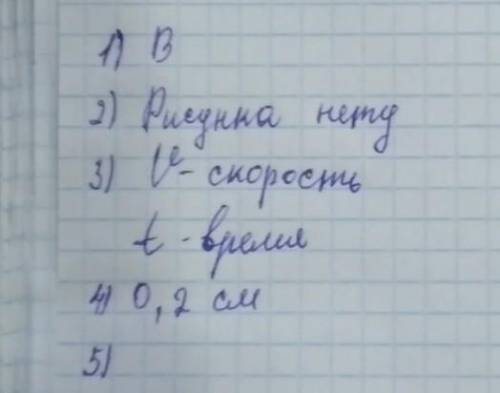 1) В
2) Рисунка нету
3) V - скорость
t - время
4) 0,2 см
5)